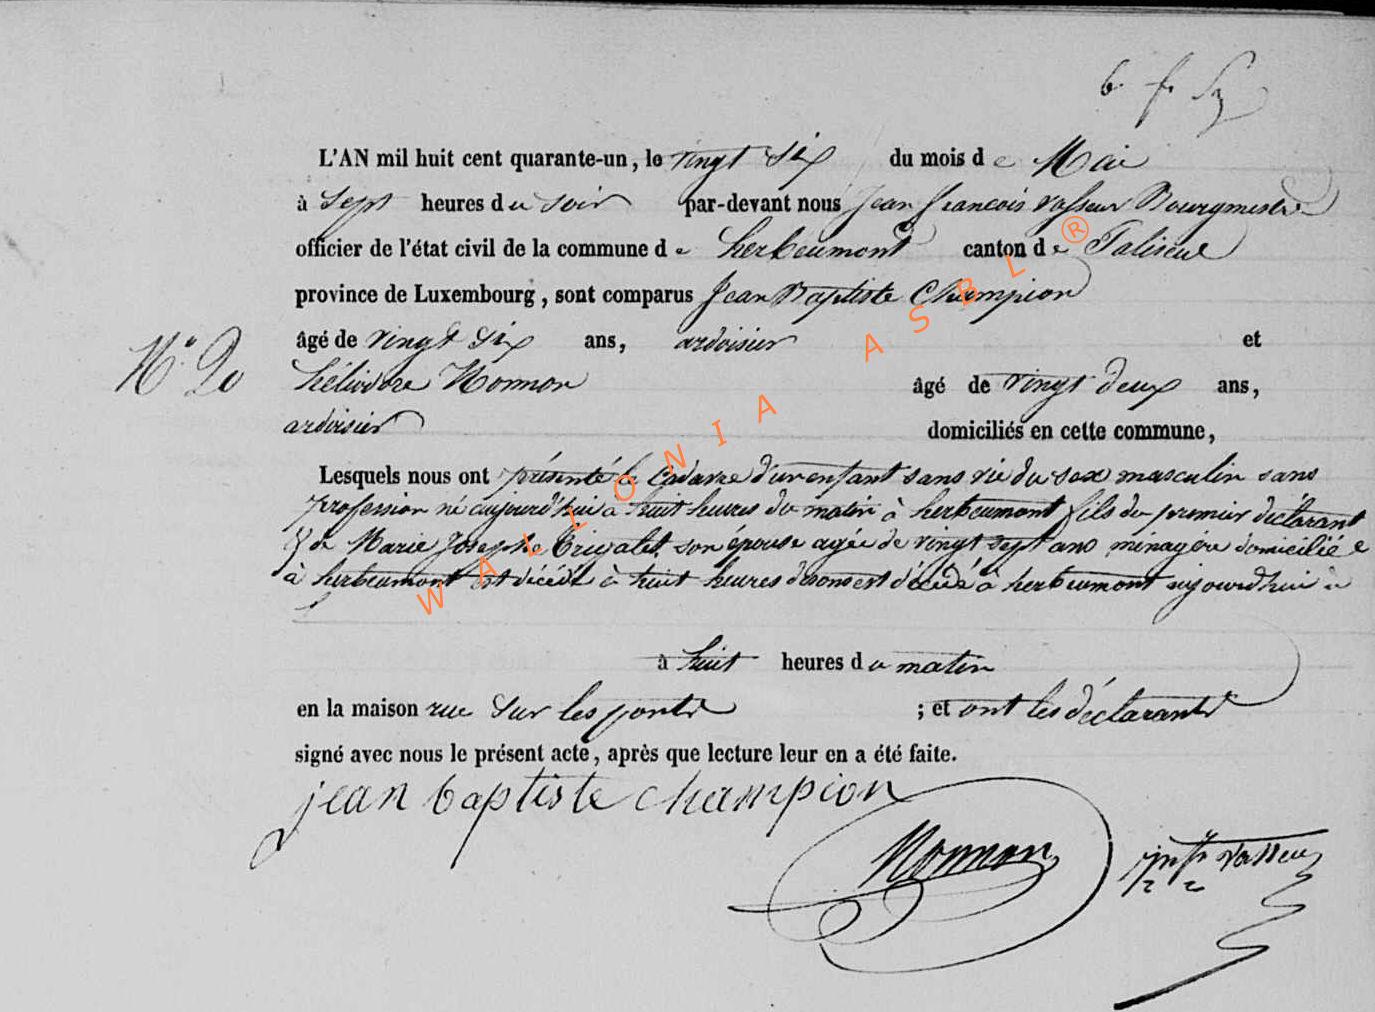 L'AN mil huit cent quarante-un, le vingt six du mois de Mai
à sept heures du soir par-devant nous Jean francois Vasseur Bourgmestre
officier de l'état civil de la commune de herbeumont canton de Paliseul
province de Luxembourg, sont comparus Jean Baptiste Champion
âgé de vingt six ans, ardoisier et
N.º
héliodore Nonnon âgé de vingt deux ans,
ardoisier domiciliés en cette commune,
Lesquels nous ont présenté le cadavre d'un enfant sans vie du sex masculin sans
profession né aujourd'hui à huit heures du matin à herbeumont fils du premier déclarant
& de Marie Josephe son épouse agée de vingt sept ans ménagère domiciliée
à herbeumont est décédé à huit heures est décédé à herbeumont aujourd'hui à
à huit heures du matin
en la maison rue sur les ponts ; et ont les déclarants
signé avec nous le présent acte, après que lecture leur en a été faite.
jean baptiste champion
Nonnon
Vasseur
WALLONIA ASBL ®